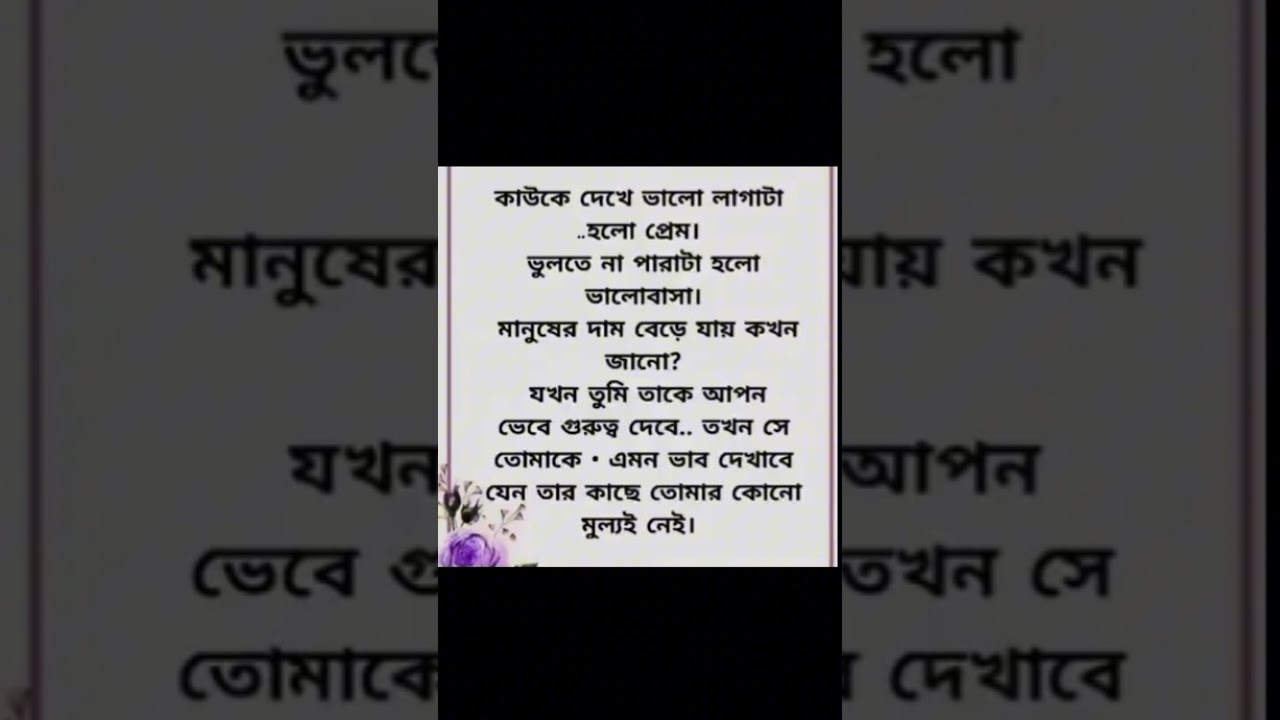 কাউকে দেখে ভালো লাগাটা
..হলো প্রেম।
ভুলতে না পারাটা হলো
ভালোবাসা।
মানুষের দাম বেড়ে যায় কখন
জানো?
যখন তুমি তাকে আপন
ভেবে গুরুত্ব দেবে.. তখন সে
তোমাকে • এমন ভাব দেখাবে
যেন তার কাছে তোমার কোনো
মুল্যই নেই।